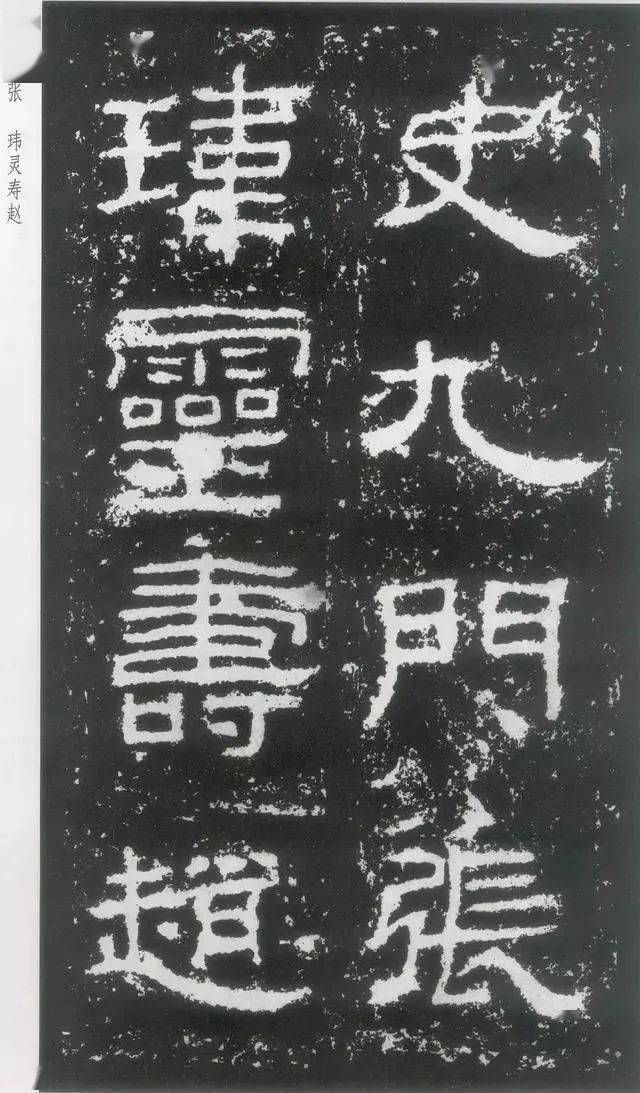 史九門張
瑋靈壽趙
张 玮灵寿赵